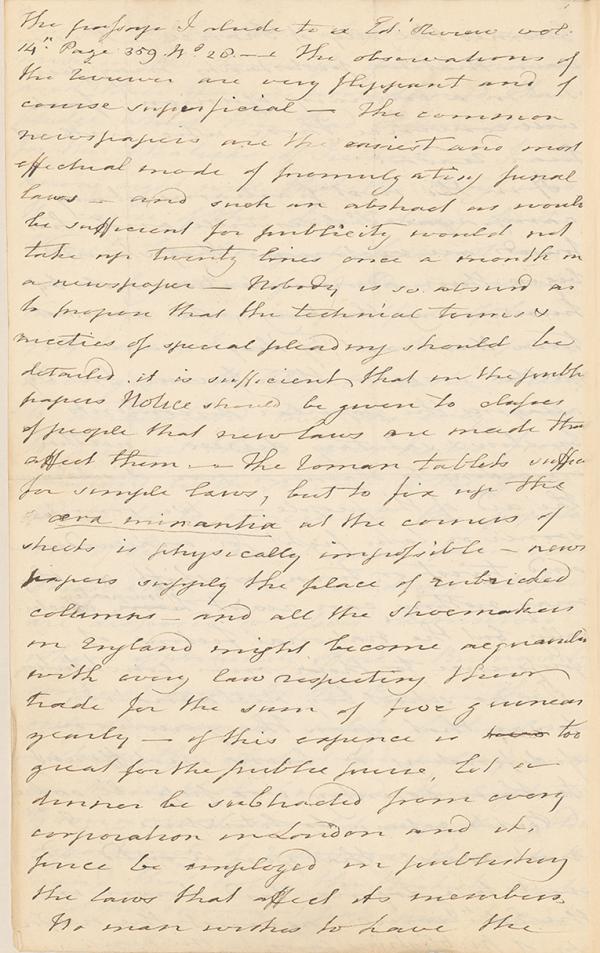 The passage I allude to is Ed.r Review vol.
14.th Page 359. No 28. — the observations of
the reviewer are very flippant and of
course superficial — The common
newspapers are the easiest and most
effectual mode of promulgating penal
laws — and such an abstract as would
be sufficient for publicity would not
take up twenty lines once a month in
a newspaper — Nobody is so absurd as
to propose that the technical terms &
niceties of special pleading should be
detailed. it is sufficient that in the public
papers Notice should be given to classes
of people that new laws are made that
affect them. — The Roman tablets suffice
for simple laws, but to fix up the
æra minantia at the corners of
streets is physically impossible — news
papers supply the place of rubricked
columns — and all the shoemakers
in England might become acquainted
with every law respecting their
trade for the sum of five guineas
yearly — if this expence is too
great for the public purse, Let a
dinner be subtracted from every
corporation in London and its
price be employed in publishing
the laws that affect its members.
No man wishes to have the